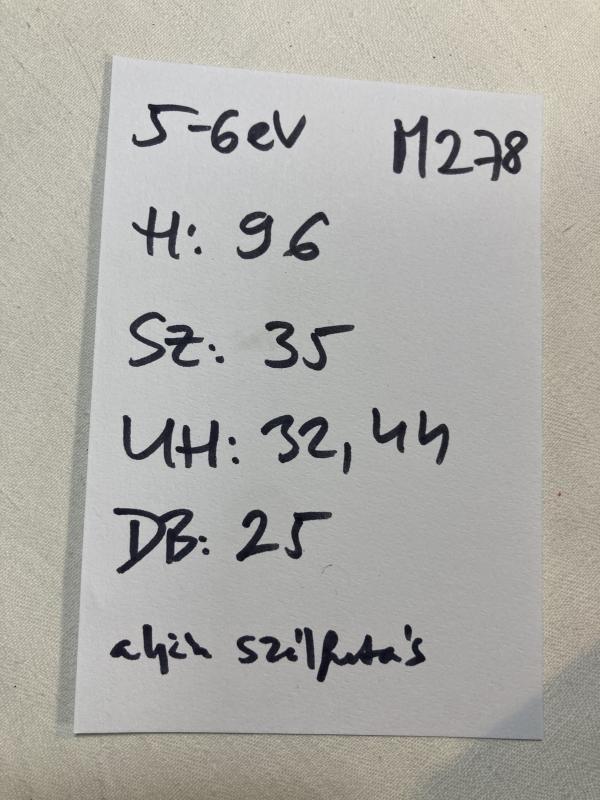 5-6 eV M278
H: 96
SZ: 35
UH: 32, 44
DB: 25
alján szílfutás